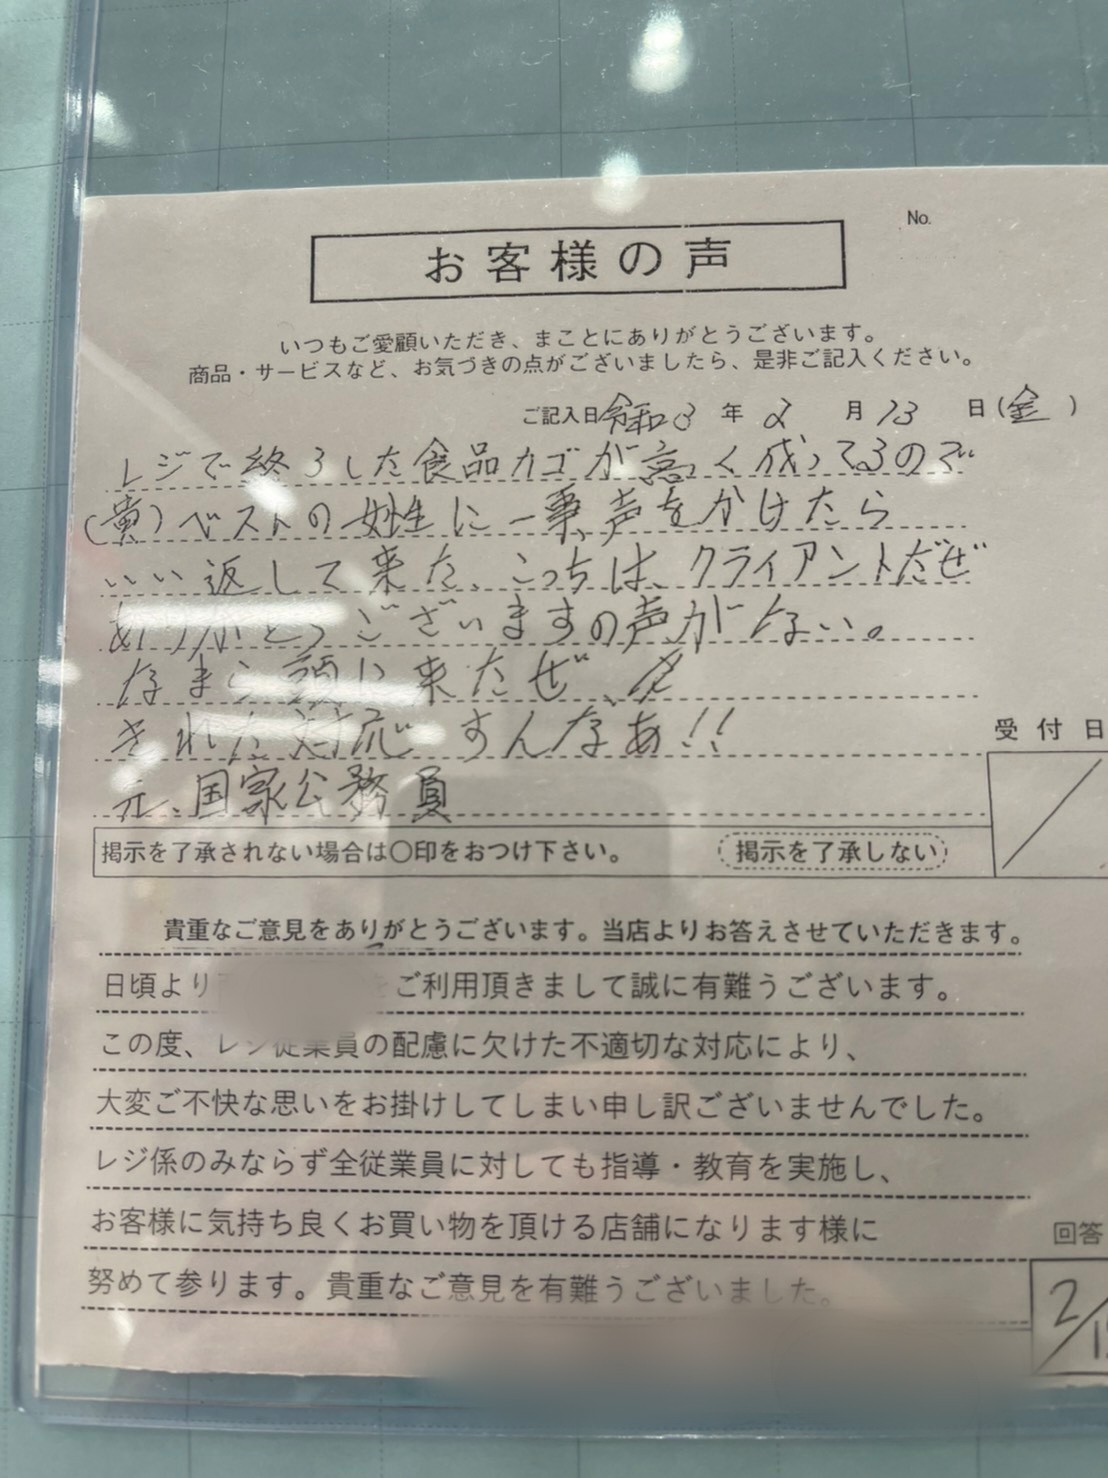 No.
お客様の声
いつもご愛顧いただき、まことにありがとうございます。
商品・サービスなど、お気づきの点がございましたら、是非ご記入ください。
ご記入日 令和8年2月13日(金)
レジで終了した食品カゴが高く成ってるので
(黄)ベストの女性に一事、声をかけたら
いい返して来た、こっちは、クライアントだぜ
ありがとうございますの声がない。
なまら頭に来たぜ、
された対応すんなぁ!!
元、国家公務員
受付日
掲示を了承されない場合は○印をおつけ下さい。 掲示を了承しない
貴重なご意見をありがとうございます。当店よりお答えさせていただきます。
日頃より をご利用頂きまして誠に有難うございます。
この度、レジ従業員の配慮に欠けた不適切な対応により、
大変ご不快な思いをお掛けしてしまい申し訳ございませんでした。
レジ係のみならず全従業員に対しても指導・教育を実施し、
お客様に気持ち良くお買い物を頂ける店舗になります様に
回答
努めて参ります。貴重なご意見を有難うございました。
2/1